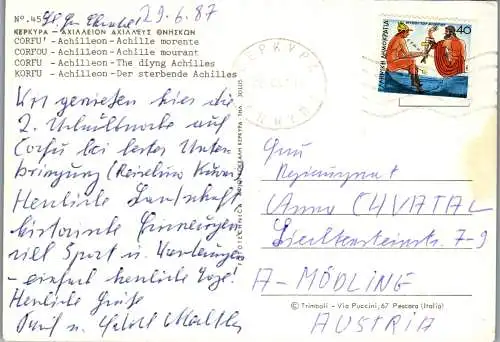 Nº.45
29.6.87
ΚΕΡΚΥΡΑ - ΑΧΙΛΛΕΙΟΝ ΑΧΙΛΛΕΥΣ ΘΝΗΣΚΩΝ
CORFU' - Achilleon - Achille morente
CORFOU - Achilleon - Achille mourant
CORFU - Achilleon - The diyng Achilles
KORFU - Achilleon - Der sterbende Achilles
Wir genießen hier die
2. Urlaubswoche auf
Corfu bei bester Unter
bringung (Reisebüro
Herrliche Landschaft
historische Erinnerungen
viel Sport u.
- einfach herrliche Tage!
Herzliche Grüße
u.
ΚΕΡΚΥΡΑ
ΕΛΛΗΝΙΚΗ ΔΗΜΟΚΡΑΤΙΑ
40
FOTOTECHNICA
Frau
Anna CHVATAL
Liechtensteinstr. 7-9
A-MÖDLING
© Trimboli - Via Puccini, 67 Pescara (Italia)
AUSTRIA